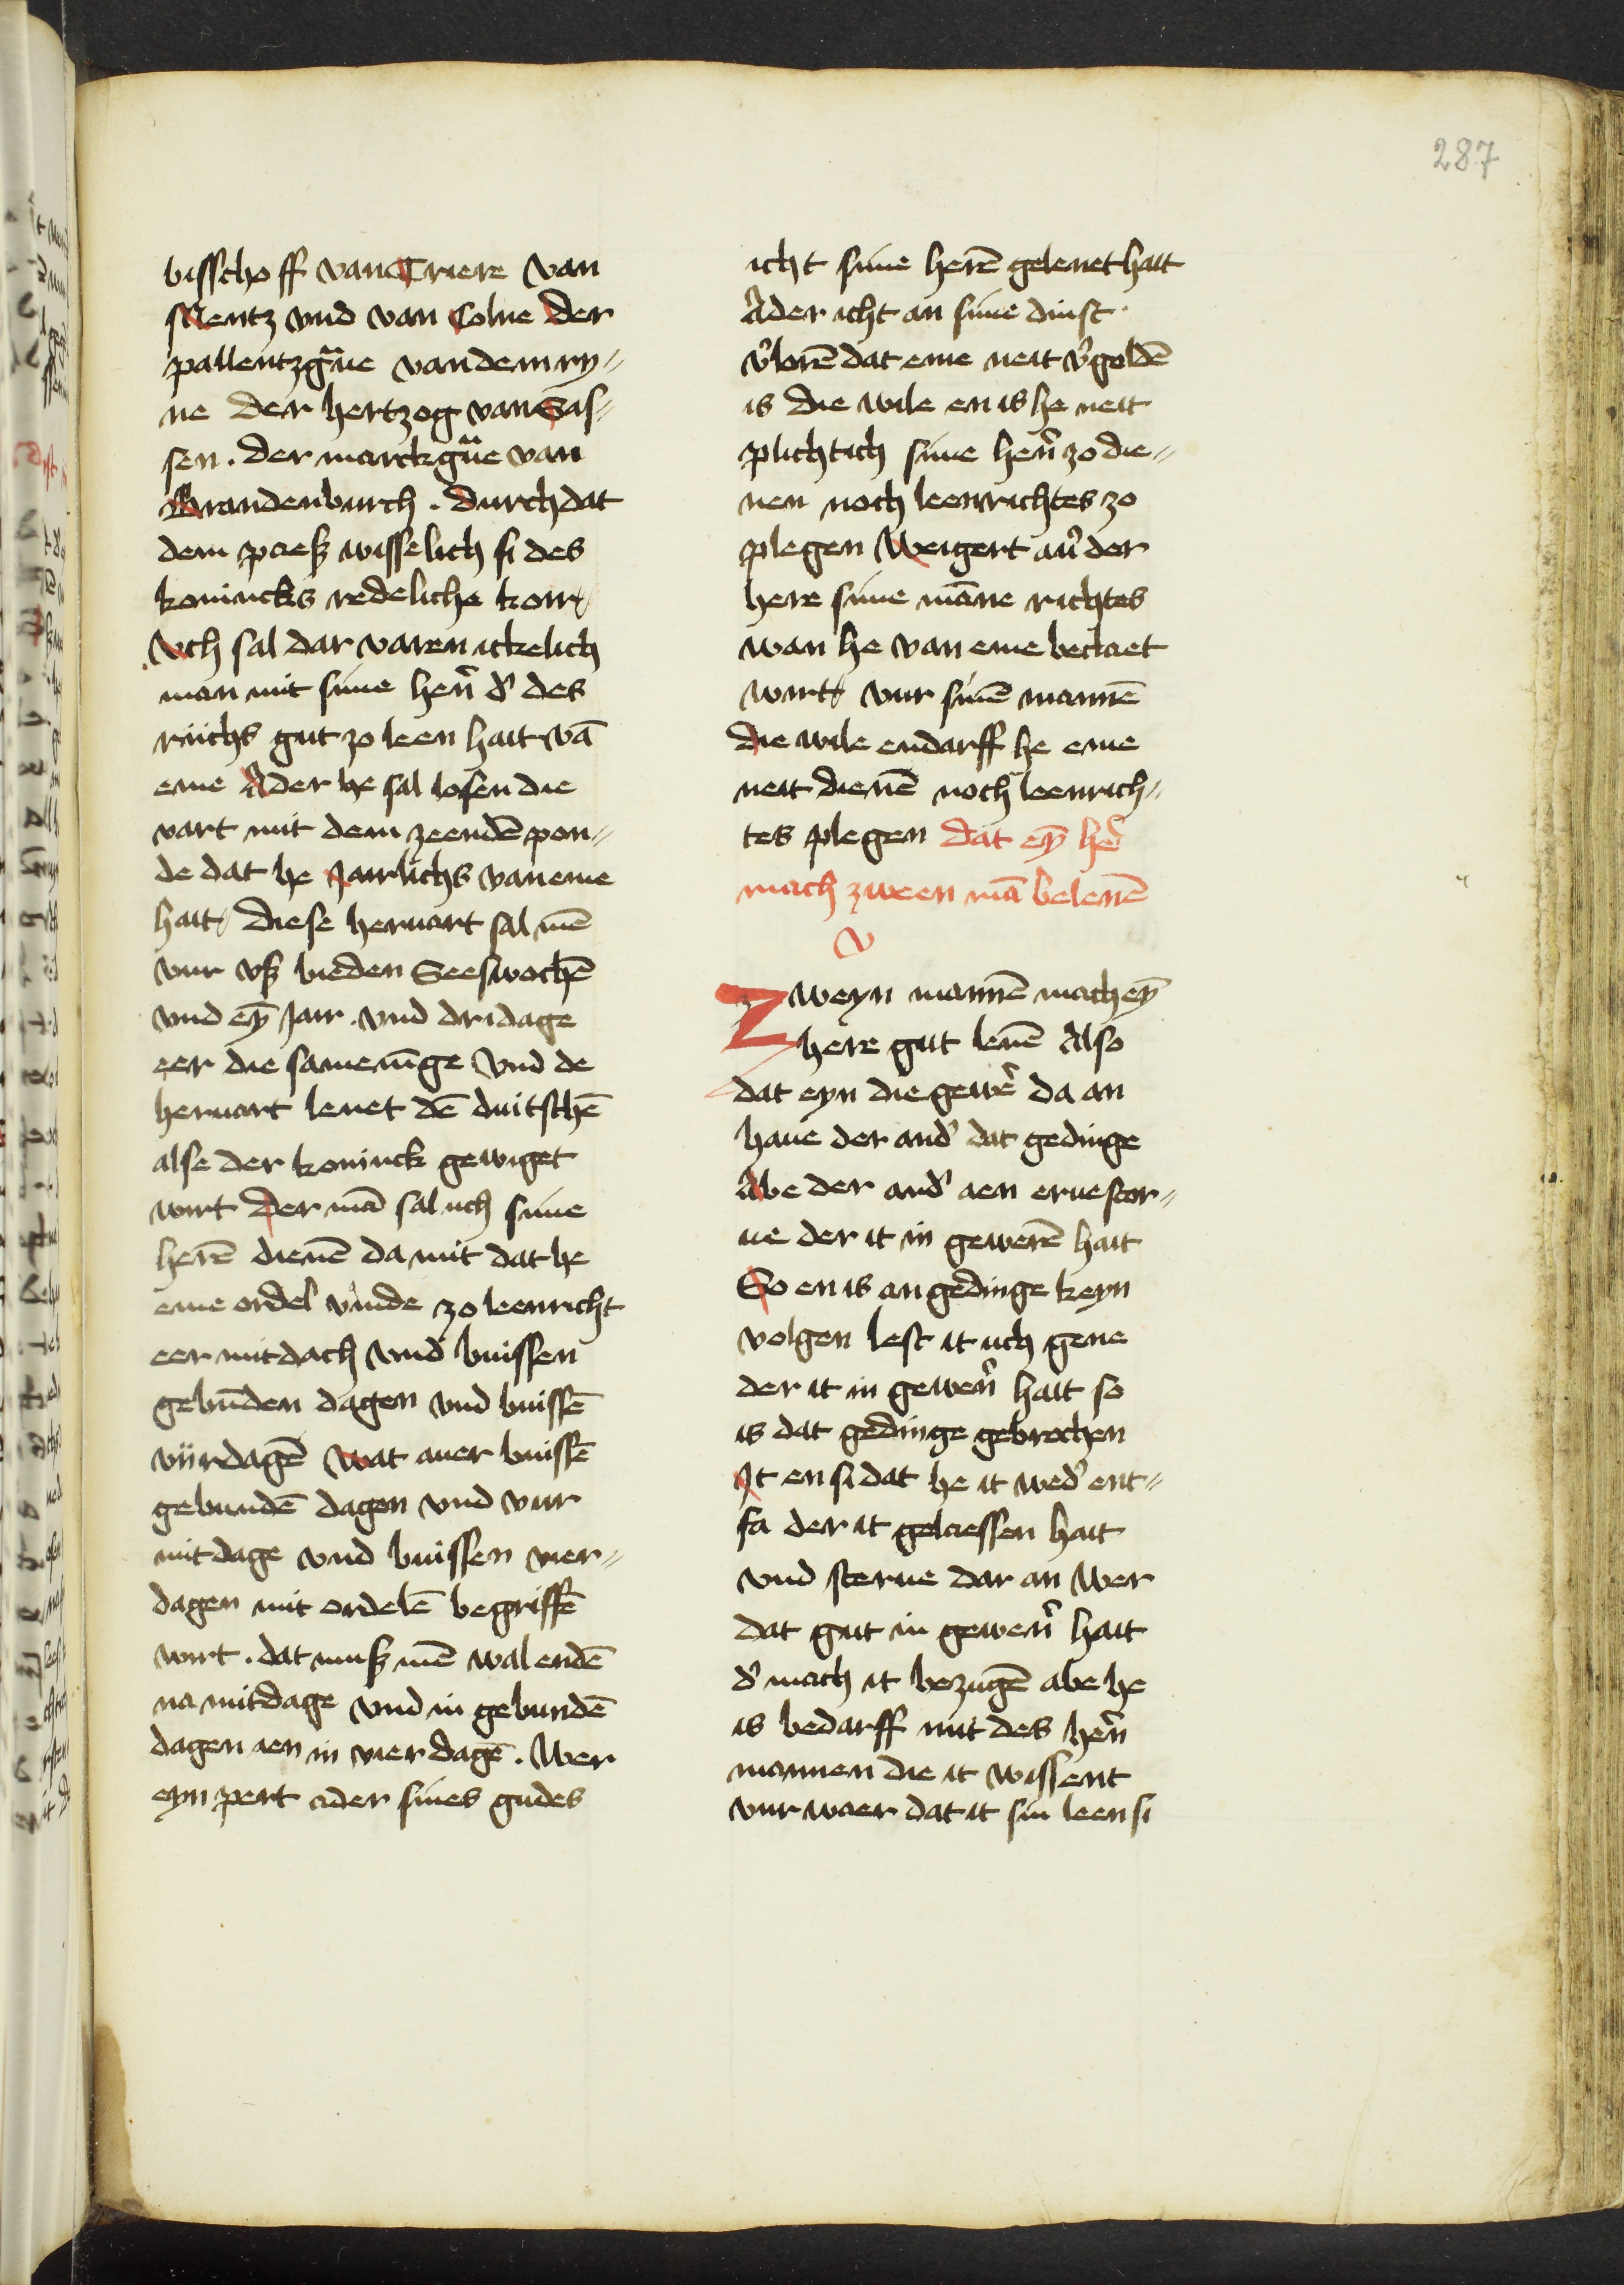 287
bisschoff van Triere van
Mentz vnd van Colne der
pallentzgͣue van dem ry⸗
ne der hertzog van Sas⸗
sen . der marckgͣue van
Brandenburch . durch dat
dem paeß wisselich si des
konincks redeliche kore
Vch sal dar varen ickelich
man mit sime hen̾ d̾ des
riichs gut zo leen hait vā
eme Ader he sal losen die
vart mit dem zeendē pon⸗
de dat he Jairlichs van eme
hait / diese heruart sal mē
vur vß bieden Seeswochē
vnd eyn̄ Jair . vnd dri dage
eer die samenūge vnd de
heruart lenet dē duitschē
alse der koninck gewiget
wirt Der mā sal uch sime
herē dienē da mit dat he
eme ordel vinde zo leenricht
eer mitdach vnd buissen
gebūden dagen vnd buissē
viirdagē wat auer buissē
gebundē dagen vnd vur
mitdage vnd buissen vier⸗
dagen mit ordelē begriffē
wirt . dat muß mē wal endē
na mitdage vnd in gebundē
dagen aen in vier dagē . Wer
eyn pert ader sines gudes
icht sime herē gelenet hait
Ader icht an sime dinst
v̾lorē dat eme neit v̾goldē
is die wile en is he neit
plichtich sime hen̾ zo die⸗
nen noch leenrichtes zo
plegen Weigert au̾ der
here sime māne richtes
wan he van eme beclaet
wirt / vur sinē mannē
Die wile endarff he eme
neit dienē noch leenrich⸗
tes plegen dat eyn̄ her̾
mach zween mā belenē
Zweyn mannē mach eyn̄
here gut lenē Also
dat eyn die gewer̾ da an
haue der and̾ dat gedinge
Abe der and̾ aen erue stor⸗
ue der it in gewerē hait
So en is an gedinge keyn
volgen lest it uch gene
der it in gewen̾ hait so
is dat gedinge gebrochen
It en si dat he it wed̾ ent⸗
fa der it gelaessen hait
vnd sterue dar an Wer
dat gut in gewen̾ hait
d̾ mach it bezugē abe he
is bedarff mit des hen̾
mannen die it wissent
vur waer dat it sin leen si